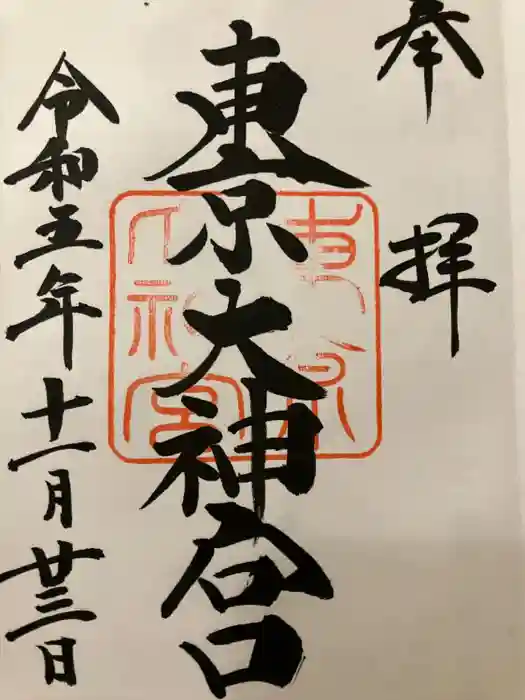 奉拝
東京大神宮
令和五年十一月廿三日
東京大神宮